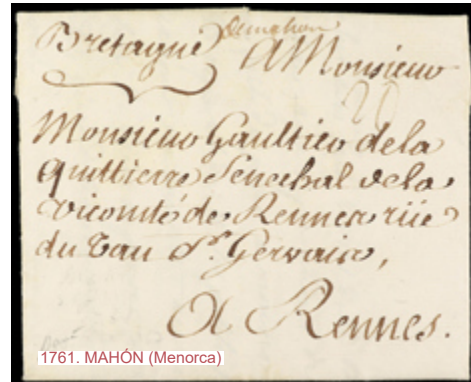 Bretagne
de mahon
A Monsieur
20
Monsieur Gaultier de la
Quittierre Senechal de la
vicomté de Rennes rüe
du Tau St. Gervais,
A Rennes.
1761. MAHÓN (Menorca)